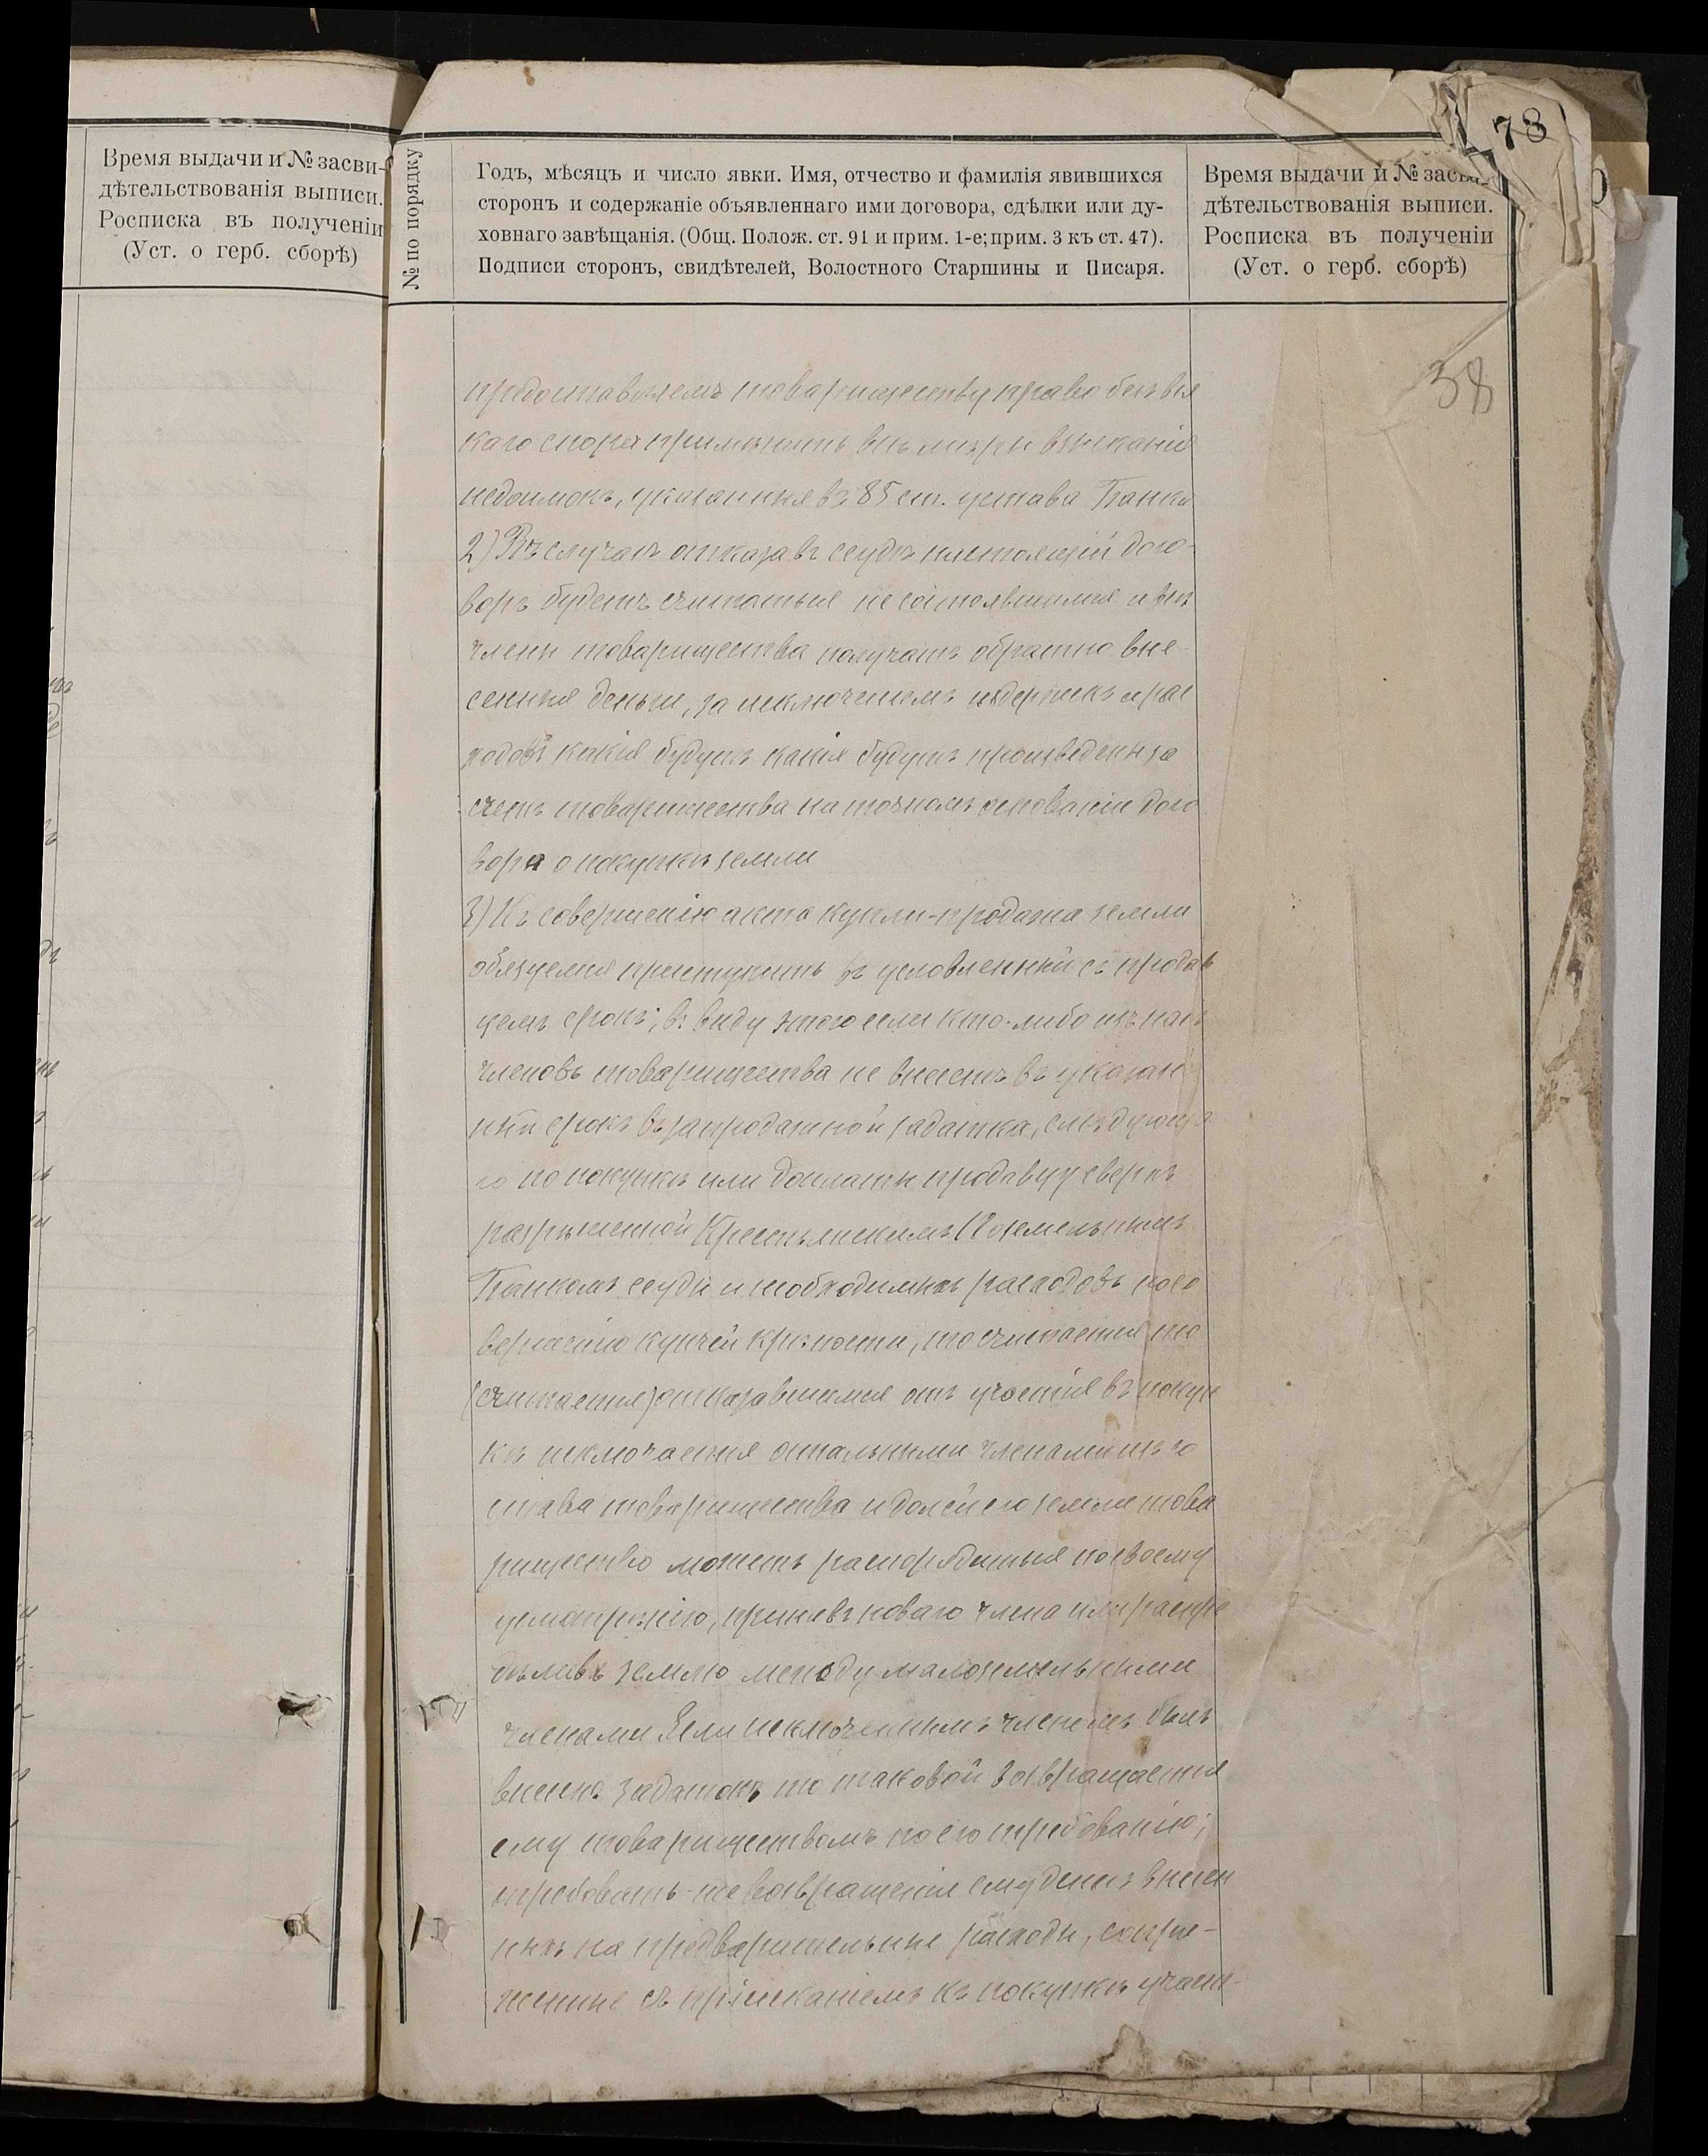 Время выдачи и № засви-
дѣтельствованія выписи.
Росписка въ полученіи
(Уст. о герб. сборѣ)
№ по порядку
Годъ, мѣсяцъ и число явки. Имя, отчество и фамилія явившихся
сторонъ и содержаніе объявленнаго ими договора, сдѣлки или ду-
ховнаго завѣщанія. (Общ. Полож. ст. 91 и прим. 1-е; прим. 3 къ ст. 47).
Подписи сторонъ, свидѣтелей, Волостного Старшины и Писаря.
Время выдачи и № засви-
дѣтельствованія выписи.
Росписка въ полученіи
(Уст. о герб. сборѣ)
78
38
предоставляемъ товариществу право безъ вся
каго спора примѣнить всѣ мѣры взысканія
недоимокъ, указанныя въ 85 ст. устава Банка
2) Въ случаѣ отказа въ ссудѣ настоящій дого-
воръ будетъ считаться не состоявшимся и всѣ
члены товарищества получатъ обратно вне-
сенныя деньги, за исключеніемъ издержекъ и рас
ходовъ какія будутъ какія будутъ произведены за
счетъ товарищества на точномъ основаніи дого
вора о покупкѣ земли
3) Къ совершенію акта купли-продажа земли
обязуемся приступить въ условленный съ продав
цемъ срокъ; въ виду этого если кто-либо изъ насъ
членовъ товарищества не внесетъ въ указан
ный срокъ въ запродажной задатка, слѣдующа
го по покупкѣ или доплаты продавцу сверхъ
разрѣшенной Крестьянскимъ Поземельнымъ
Банкомъ ссуды и необходимыхъ расходовъ по со
вершенію купчей крѣпости, то считается то
(считается) отказавшимся отъ участія въ покуп
кѣ исключается остальными членами изъ со
става товарищества и долей его земли това
рищество можетъ распорядиться по своему
усмотрѣнію, принявъ новаго члена или распре
дѣливъ землю между малоземельными
членами Если исключеннымъ членомъ былъ
внесенъ задатокъ то таковой возвращается
ему товариществомъ по его требованію;
требовать-же возвращенія ему денегъ внесен
ныхъ на предварительные расходы, сопря-
женные съ пріисканіемъ къ покупкѣ участ-